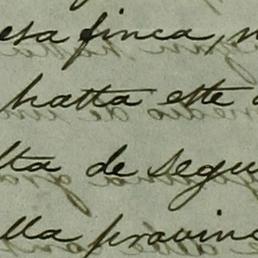 esta finca, n
hatta este
lta de segu
lla provinc